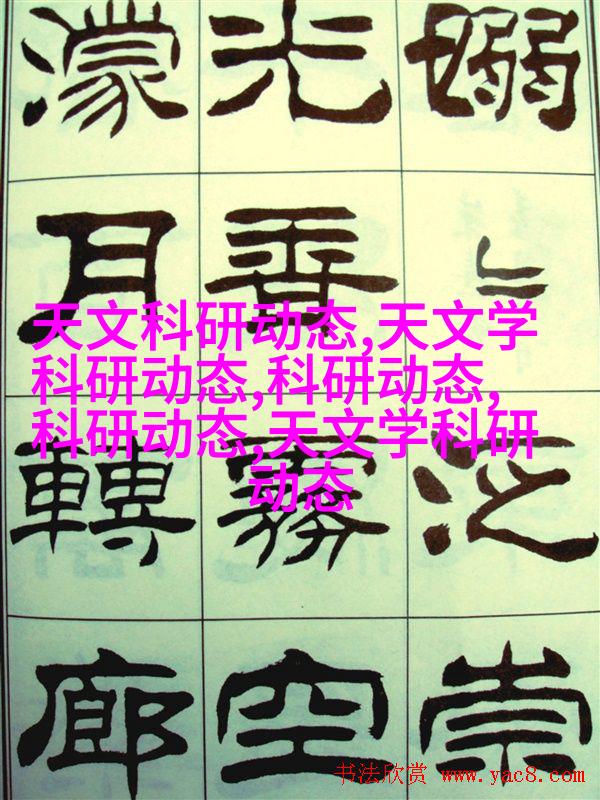 嫋〻泛崇
光香霧空
濛月轉廊
天文科研动态,天文学
科研动态,科研动态,
科研动态,天文学科研
动态
书法欣赏 www.yac8.com